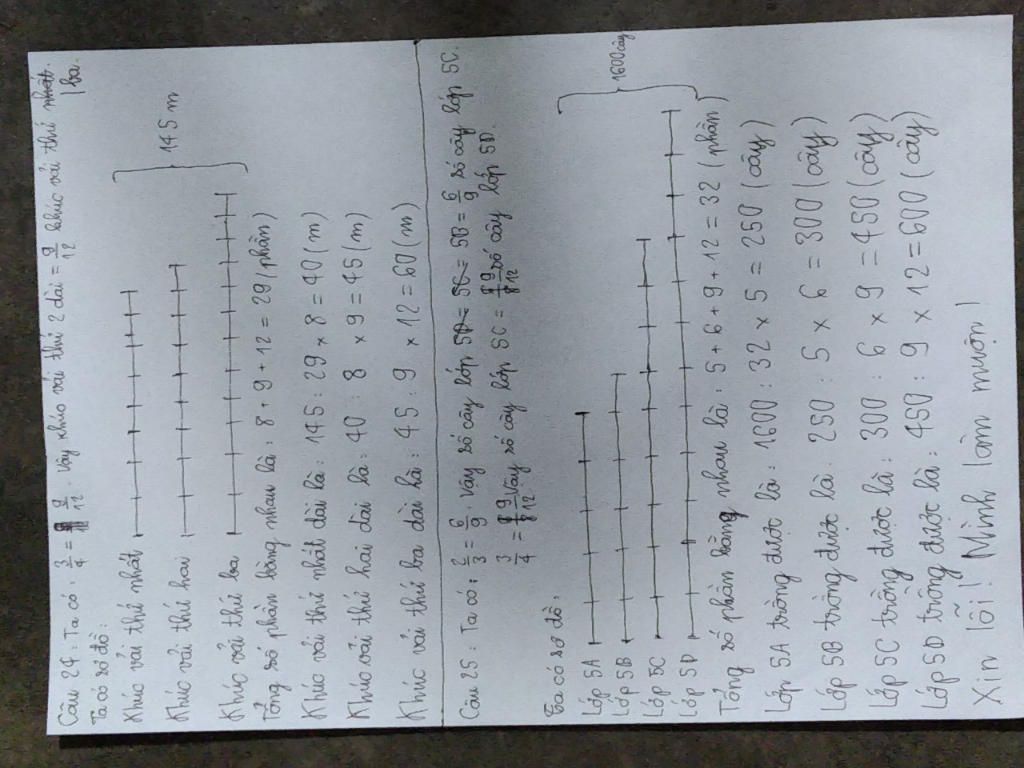 Câu 24: Ta có: 3/4 = 9/12. Vậy khúc vải thứ 2 dài = 9/12 khúc vải thứ nhất.
ba.
Ta có sơ đồ:
Khúc vải thứ nhất
Khúc vải thứ hai
145 m
Khúc vải thứ ba
Tổng số phần bằng nhau là: 8 + 9 + 12 = 29 (phần)
Khúc vải thứ nhất dài là: 145 : 29 × 8 = 40 (m)
Khúc vải thứ hai dài là: 40 : 8 × 9 = 45 (m)
Khúc vải thứ ba dài là: 45 : 9 × 12 = 60 (m)
Câu 25: Ta có: 2/3 = 6/9. Vậy số cây lớp 5D = 5C = 5B = 6/9 số cây lớp 5C.
3/4 = 9/12 Vậy số cây lớp 5C = 9/12 số cây lớp 5D.
Ta có sơ đồ:
Lớp 5A
Lớp 5B
1600 cây
Lớp 5C
Lớp 5D
Tổng số phần bằng nhau là: 5 + 6 + 9 + 12 = 32 (phần)
Lớp 5A trồng được là: 1600 : 32 × 5 = 250 (cây)
Lớp 5B trồng được là: 250 : 5 × 6 = 300 (cây)
Lớp 5C trồng được là: 300 : 6 × 9 = 450 (cây)
Lớp 5D trồng được là: 450 : 9 × 12 = 600 (cây)
Xin lỗi! Mình làm muộn!